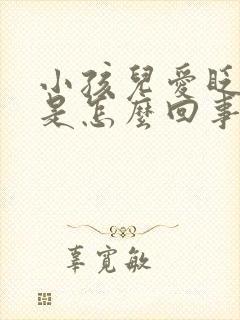 小孩兒愛眨
是怎麼回事
辜寬敏